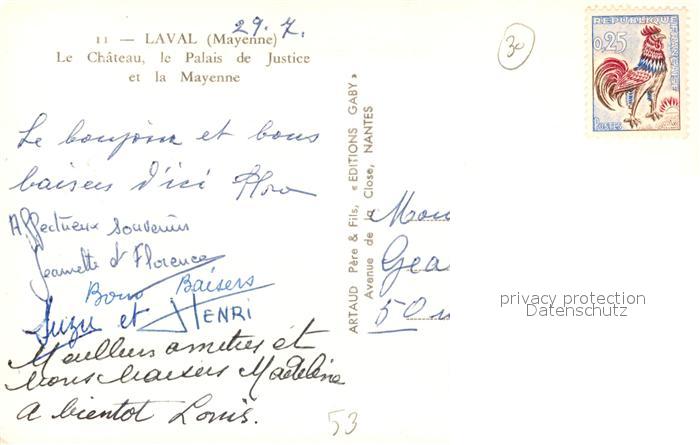 29.7.
11 — LAVAL (Mayenne)
Le Château, le Palais de Justice
et la Mayenne
Le bonjour et bons
baisers d'ici Flora
Affectueux souvenirs
Jeannette et Florence
Bons Baisers
Suzu et HENRI
Meilleurs amitiés et
bons baisers Madeleine
a bientot Louis.
53
30
ARTAUD Père & Fils, « EDITIONS GABY »
Avenue de la Close, NANTES
REPUBLIQUE FRANÇAISE
0,25
POSTES
Mon
Gea
50
privacy protection
Datenschutz